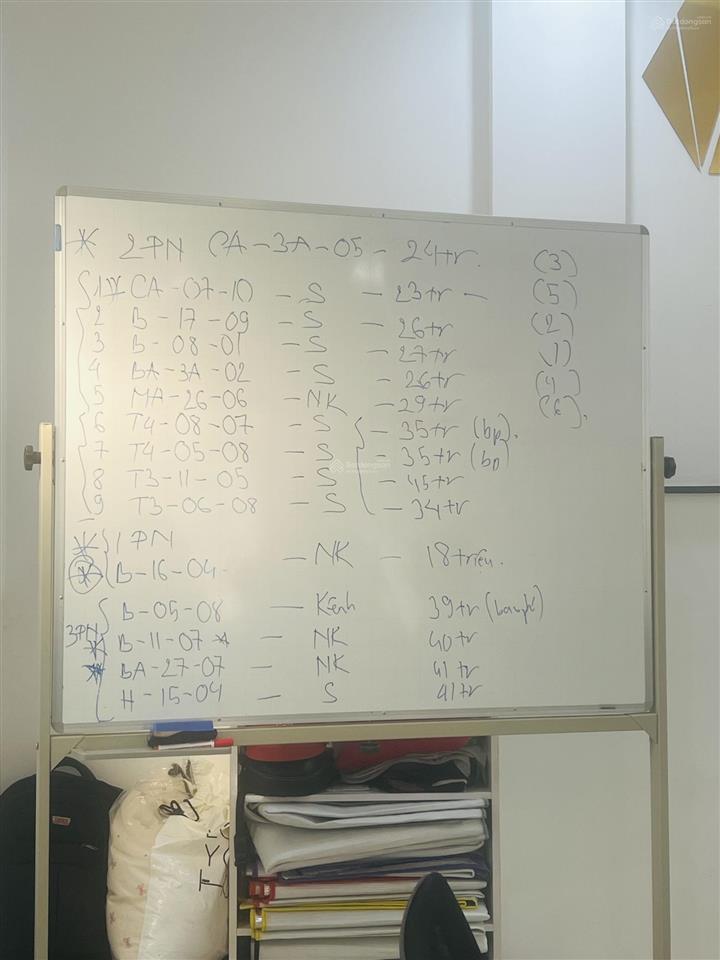 Batdongsan
* 2PN CA-3A-05 - 24tr. (3)
1 * CA-07-10 - S - 23tr - (5)
2 B-17-09 - S - 26tr (2)
3 B-08-01 - S - 27tr (1)
4 BA-3A-02 - S - 26tr (4)
5 MA-26-06 - NK - 29tr (6).
6 T4-08-07 - S - 35tr (bp).
7 T4-05-08 - S - 35tr (bp)
8 T3-11-05 - S - 45tr
9 T3-06-08 - S - 34tr
* 1PN
* B-16-04 - NK - 18 triệu.
3PN
B-05-08 - Kênh 39tr
* B-11-07 * - NK 40tr
* BA-27-07 - NK 41tr
H-15-04 - S 41tr
Batdongsan